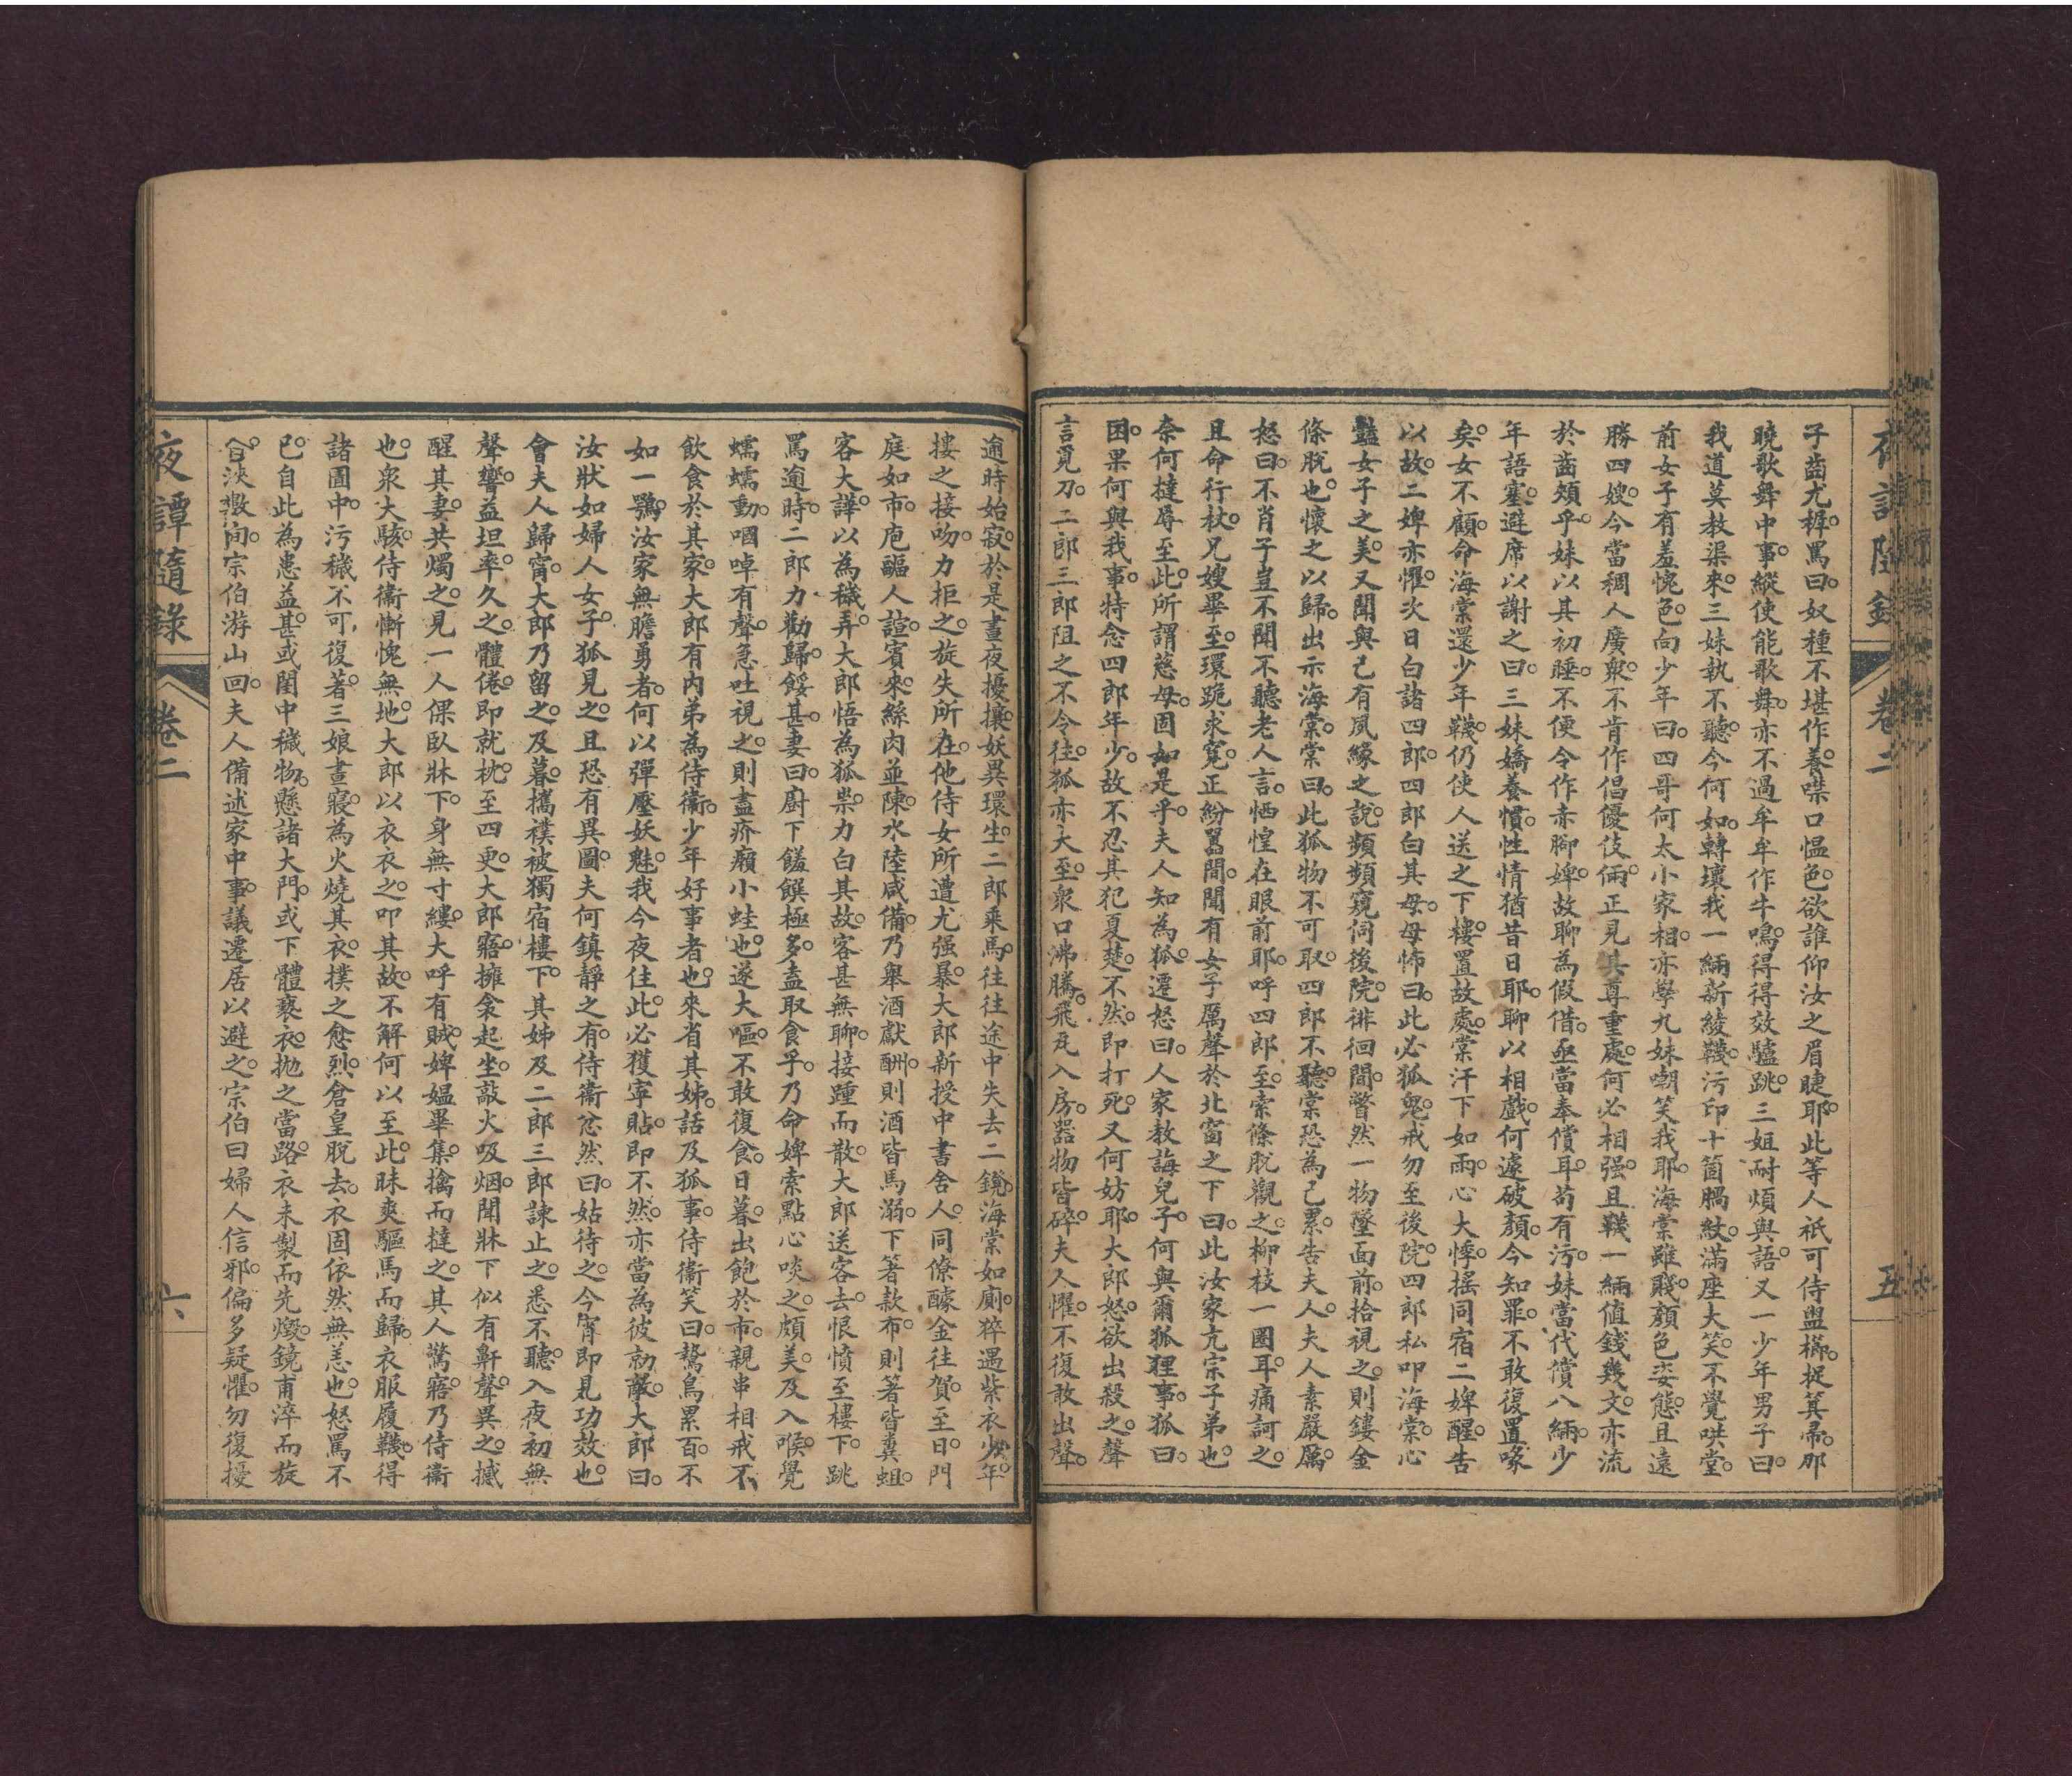 夜譚隨錄 卷二 五
子齒尤樨罵曰奴種不堪作養喋口慍色欲誰仰汝之眉睫耶此等人祇可侍盥櫛捉箕帚那
曉歌舞中事縱使能歌舞亦不過牟牟作牛鳴得得效驢跳三姐耐煩與語又一少年男子曰
我道莫教渠來三妹執不聽今何如轉壞我一緉新綾韈污印十箇腡紋滿座大笑不覺哄堂
前女子有羞惋色向少年曰四哥何太小家相亦學九妹嘲笑我耶海棠雖賤顏色姿態且遠
勝四嫂今當稠人廣衆不肯作倡優伎倆正見其尊重處何必相强且韈一緉值錢幾文亦流
於齒頰乎妹以其初睡不便令作赤脚婢故聊為假借亟當奉償耳苟有污妹當代償八緉少
年語塞避席以謝之曰三妹嬌養慣性情猶昔日耶聊以相戲何遽破顏今知罪不敢復置喙
矣女不顧命海棠還少年韈仍使人送之下樓置故處棠汗下如雨心大悸搖同宿二婢醒告
以故二婢亦懼次日白諸四郎四郎白其母母怖曰此必狐鬼戒勿至後院四郎私叩海棠心
豔女子之美又聞與己有夙緣之說頻頻窺伺後院徘徊間瞥然一物墜面前拾視之則鏤金
條脫也懷之以歸出示海棠棠曰此狐物不可取四郎不聽棠恐為己累告夫人夫人素嚴厲
怒曰不肖子豈不聞不聽老人言恓惶在眼前耶呼四郎至索條脫觀之柳枝一圈耳痛訶之
且命行杖兄嫂畢至環跪求寬正紛囂間聞有女子厲聲於北窗之下曰此汝家亢宗子弟也
奈何撻辱至此所謂慈母固如是乎夫人知為狐遷怒曰人家教誨兒子何與爾狐狸事狐曰
因果何與我事特念四郎年少故不忍其犯夏楚不然即打死又何妨耶大郎怒欲出殺之聲
言覓刀二郎三郎阻之不令往狐亦大至衆口沸騰飛瓦入房器物皆碎夫人懼不復敢出聲
逾時始寂於是晝夜擾攘妖異環生二郎乘馬往往途中失去二鐙海棠如廁猝遇紫衣少年
摟之接吻力拒之旋失所在他侍女所遭尤强暴大郎新授中書舍人同僚醵金往賀至日門
庭如市庖醞人諠賓來絲肉並陳水陸咸備乃舉酒獻酬則酒皆馬溺下箸款布則箸皆糞蛆
客大譁以為穢弄大郎悟為狐祟力白其故客甚無聊接踵而散大郎送客去恨憤至樓下跳
罵逾時二郎力勸歸餒甚妻曰廚下饈饌極多盍取食乎乃命婢索點心啖之頗美及入喉覺
蠕蠕動嘓啅有聲急吐視之則盡疥癩小蛙也遂大嘔不敢復食日暮出飽於市親串相戒不
飲食於其家大郎有內弟為侍衛少年好事者也來省其姊話及狐事侍衛笑曰鷙鳥累百不
如一鶚汝家無膽勇者何以彈壓妖魅我今夜住此必獲寧貼即不然亦當為彼勍敵大郎曰
汝狀如婦人女子狐見之且恐有異圖夫何鎮靜之有侍衛忿然曰姑待之今宵即見功效也
會夫人歸甯大郎乃留之及暮攜襆被獨宿樓下其姊及二郎三郎諫止之悉不聽入夜初無
聲響益坦率久之體倦即就枕至四更大郎寤擁衾起坐敲火吸烟聞牀下似有鼾聲異之撼
醒其妻共燭之見一人倮臥牀下身無寸縷大呼有賊婢媼畢集擒而撻之其人驚寤乃侍衛
也衆大駭侍衛慚愧無地大郎以衣衣之叩其故不解何以至此昧爽驅馬而歸衣服履韈得
諸圊中污穢不可復著三娘晝寢為火燒其衣撲之愈烈倉皇脫去衣固依然無恙也怒罵不
已自此為患益甚或閨中穢物懸諸大門或下體褻衣拋之當路衣未製而先燬鏡甫淬而旋
㒰浹數旬宗伯游山回夫人備述家中事議遷居以避之宗伯曰婦人信邪偏多疑懼勿復擾
夜譚隨錄 卷二 六